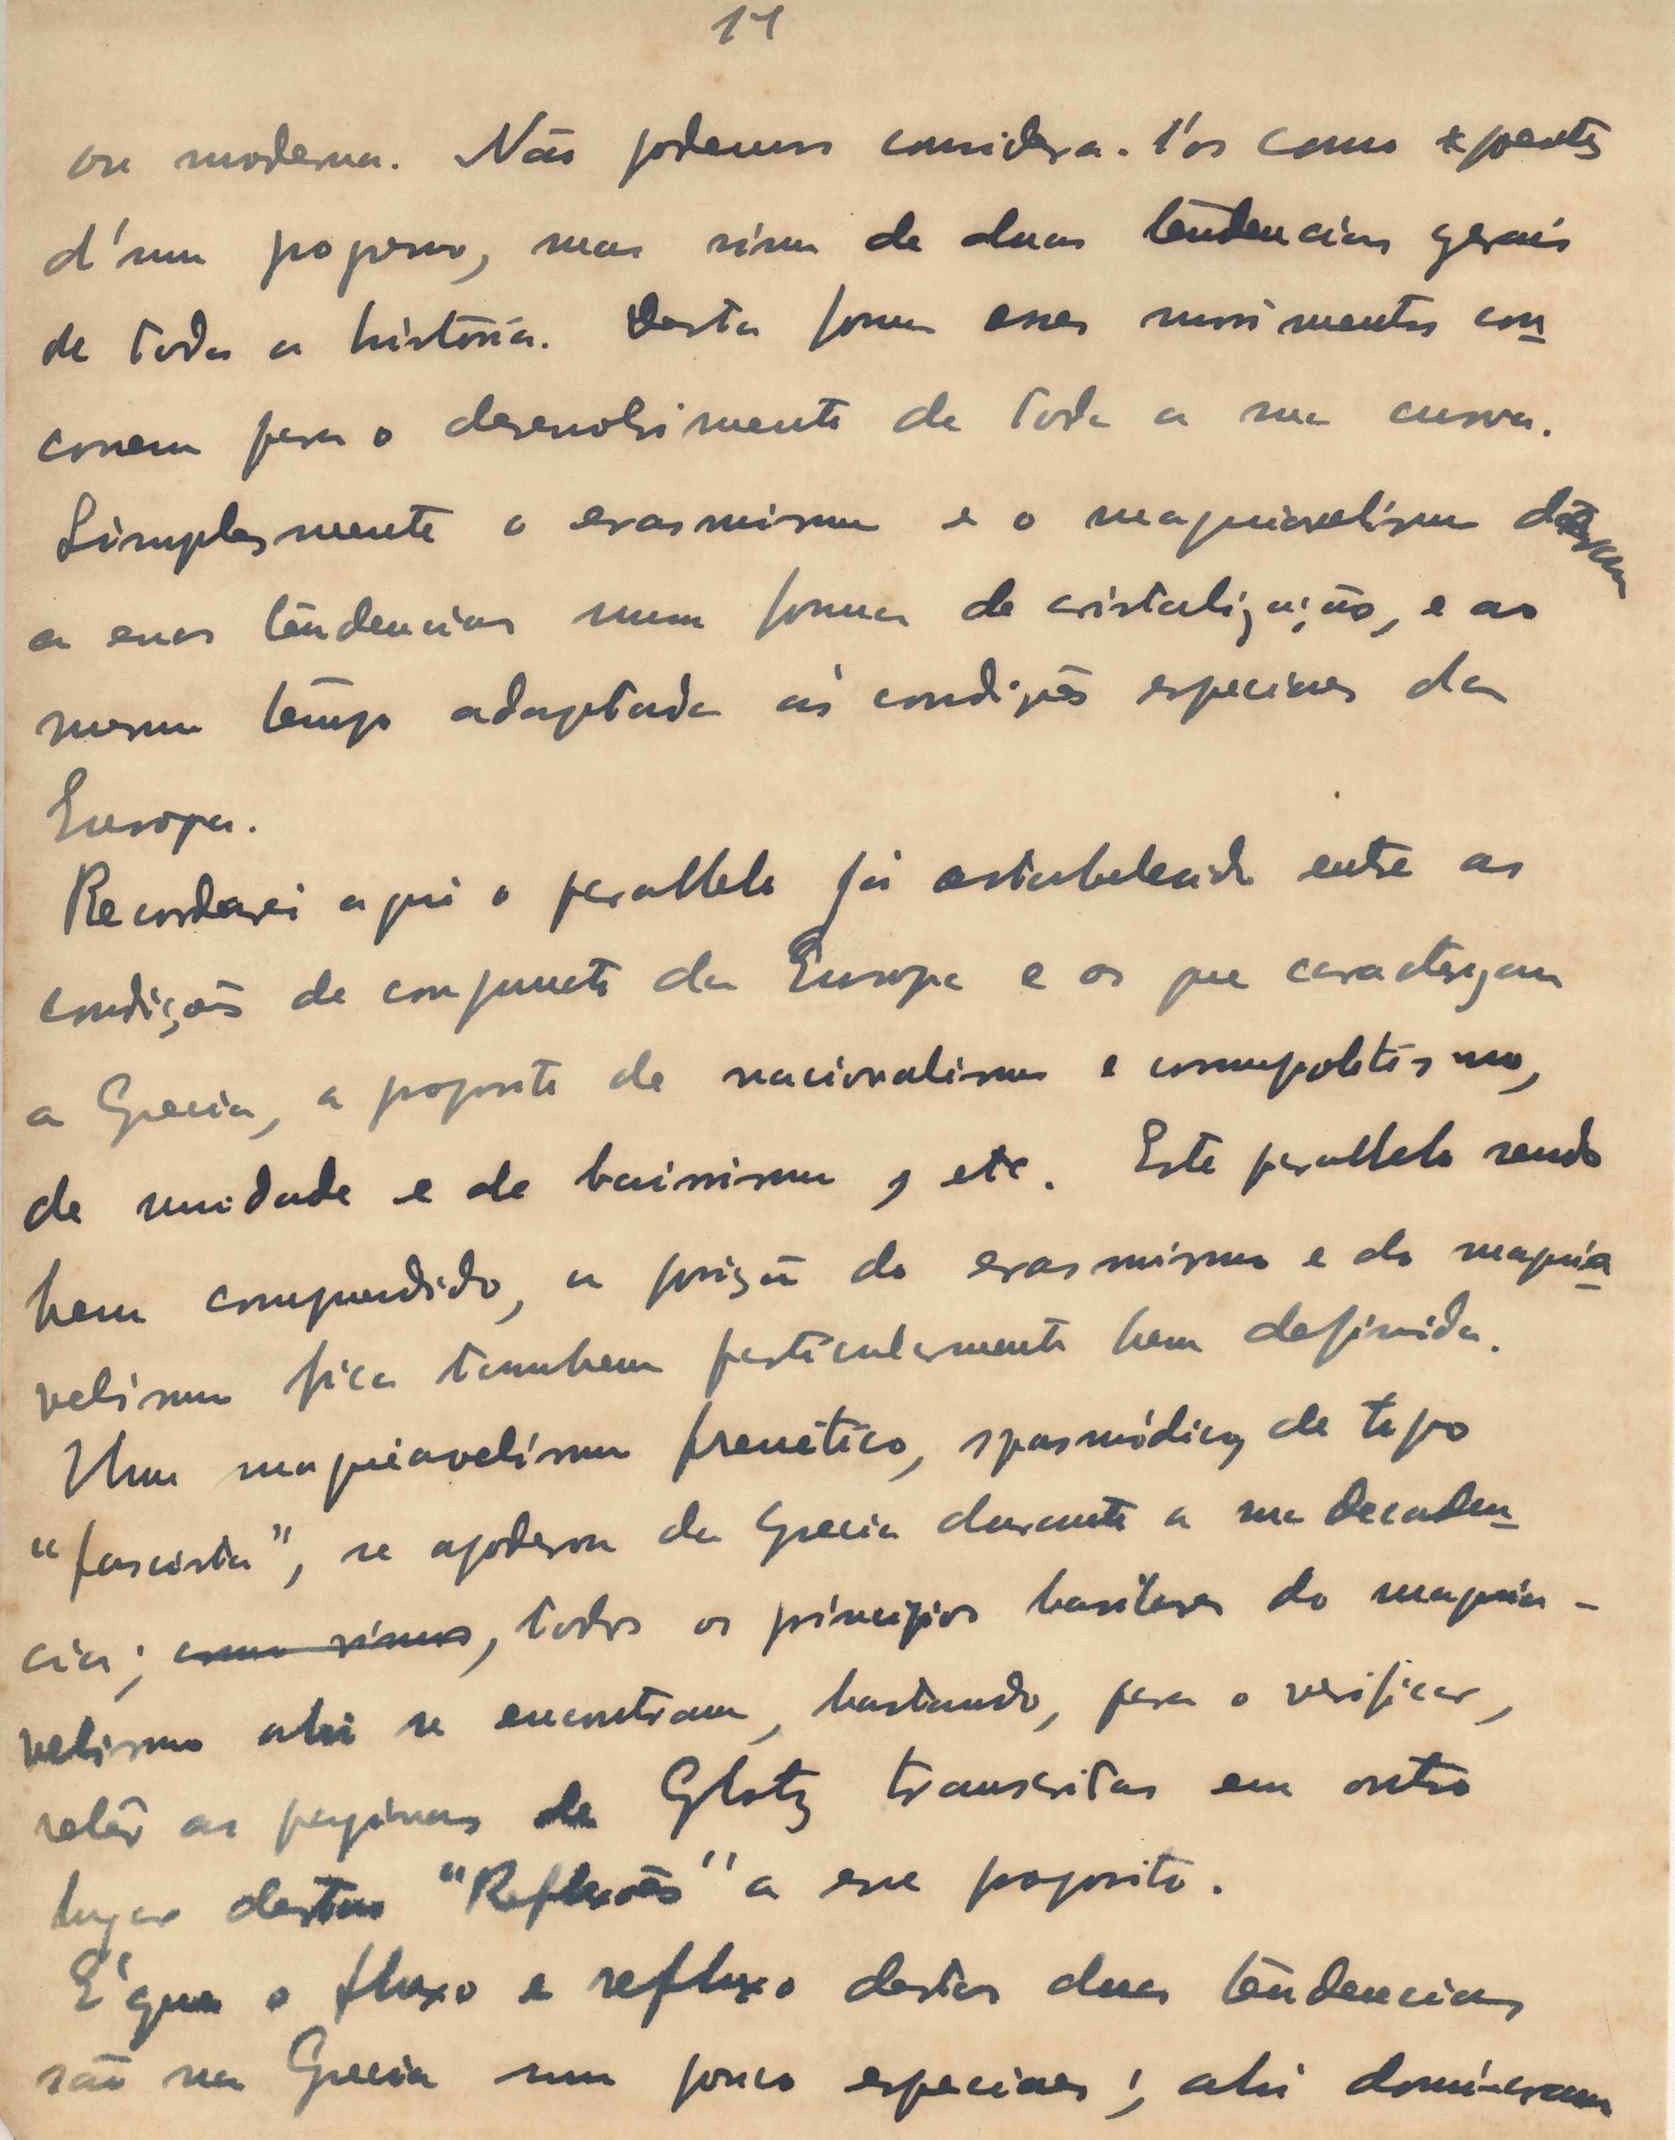 14
ou moderna. Não podemos considera-l'os como partes
d'um pogromo, mas sim de duas tendencias gerais
de toda a história. Desta forma esses movimentos con
correm para o desenvolvimento de toda a sua curva.
Simplesmente o erasmismo e o maquiavelismo
a essas tendencias numa forma de cristalização, e ao
mesmo tempo adaptada ás condições especiaes da
Europa.
Recordarei aqui o parallelo já estabelecido entre as
condições de conjuncto da Europa e as que caracterizam
a Grecia, a proposito de nacionalismo e cosmopolitismo,
de unidade e de bairrismo, etc. Este parallelo sendo
bem comprendido, a posição do erasmismo e do maquia
velismo fica tambem particularmente bem definida.
Um maquiavelismo frenético, spasmódico, de typo
"fascista", se apoderou da Grecia durante a sua decaden-
cia; como vimos, todos os principios basilares do maquia-
velismo ahi se encontram, bastando, para o verificar,
relêr as paginas de Glotz transcritas em outro
lugar destas "Reflexões" a esse proposito.
É que o fluxo e refluxo destas duas tendencias
são na Grecia um pouco especiaes; ahi dominaram